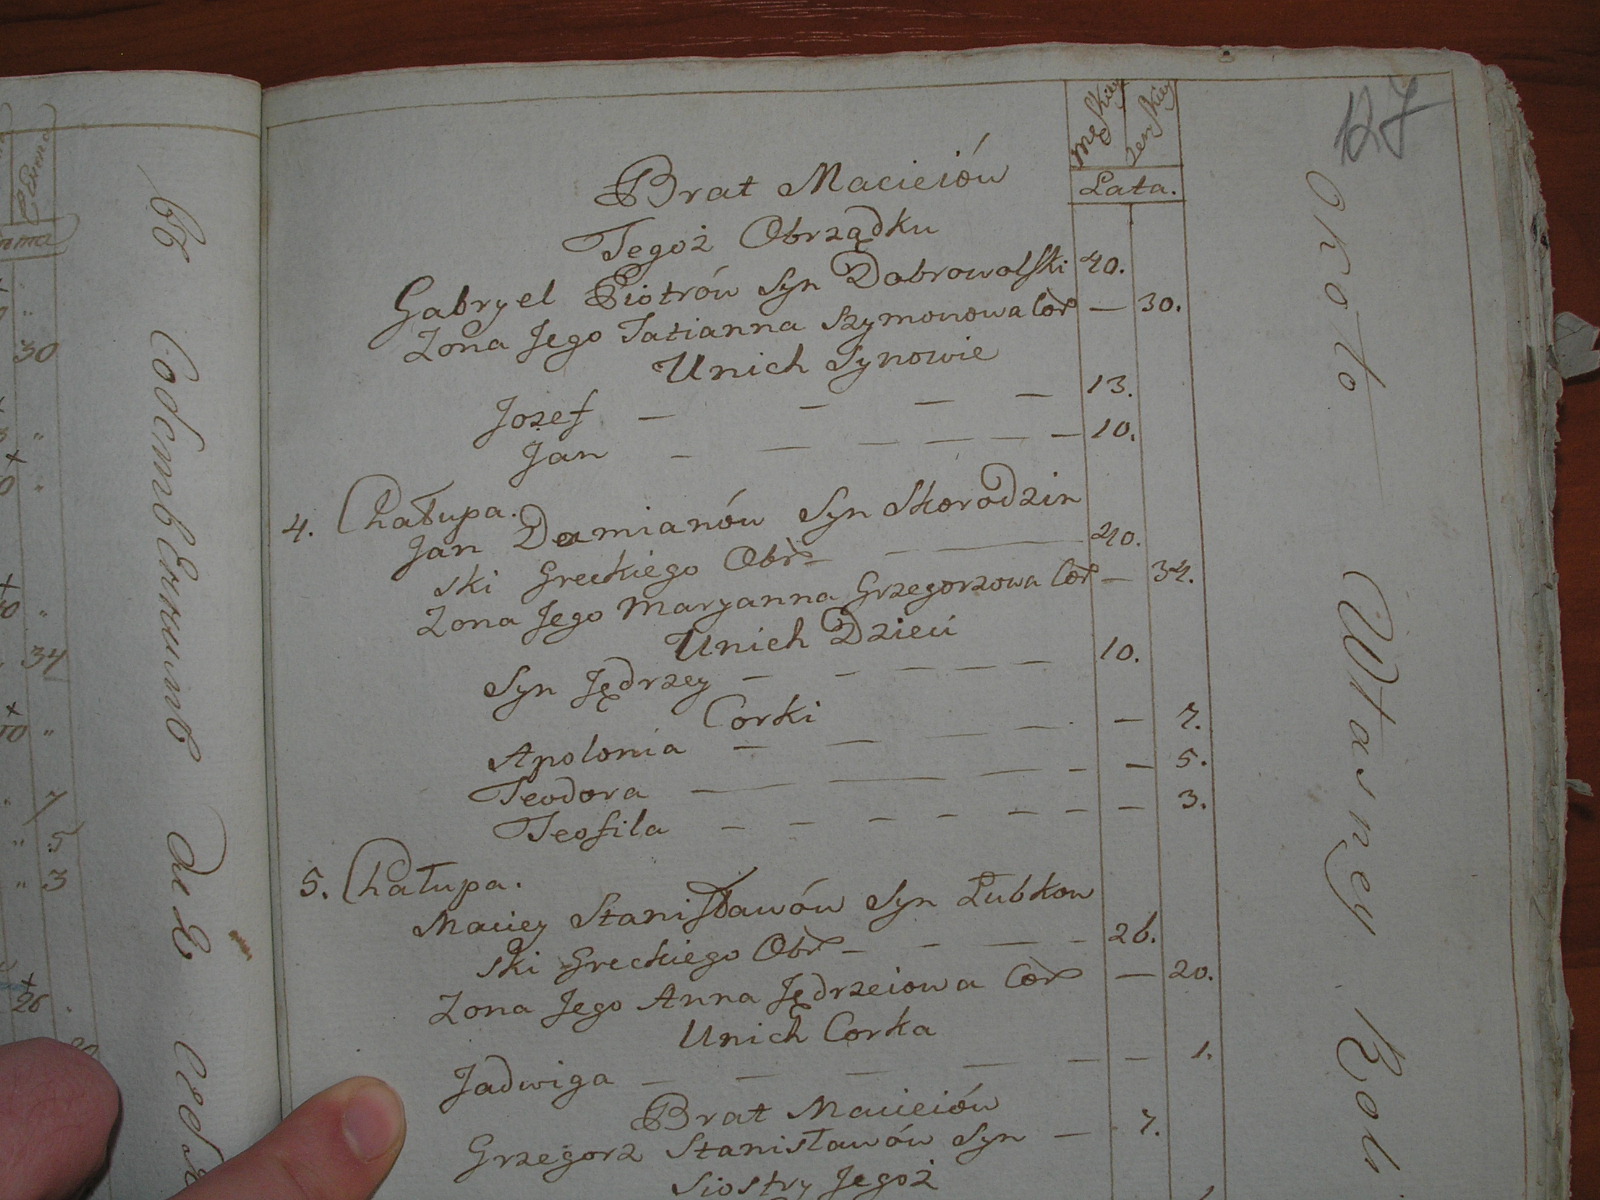 127
Męskiey
Zenskiey
Lata.
Brat Macieiów
Tegoż Obrządku
Gabryel Piotrów Syn Dobrowolski 40.
Zona Jego Tatianna Szymonowa Cor — 30.
Unich Synowie
Jozef — — — — 13.
Jan — — — — — — 10.
4. Chałupa.
Jan Damianów Syn Skorodzin
ski Greckiego Obr — 40.
Zona Jego Maryanna Grzegorzowa Cor — 34.
Unich Dzieci
Syn Jędrzey — — — — — 10.
Corki
Apolonia — — — — — — 7.
Teodora — — — — — — 5.
Teofila — — — — — — — — 3.
5. Chałupa.
Maciey Stanisławów Syn Łubkow
ski Greckiego Obr — — — — 26.
Zona Jego Anna Jędrzeiowa Cor — 20.
Unich Corka
Jadwiga — — — — — — 1.
Brat Macieiów
Grzegorz Stanisławów Syn — 7.
Siostry Jegoż
Około Własney Roli
30
34
7
5
3
26